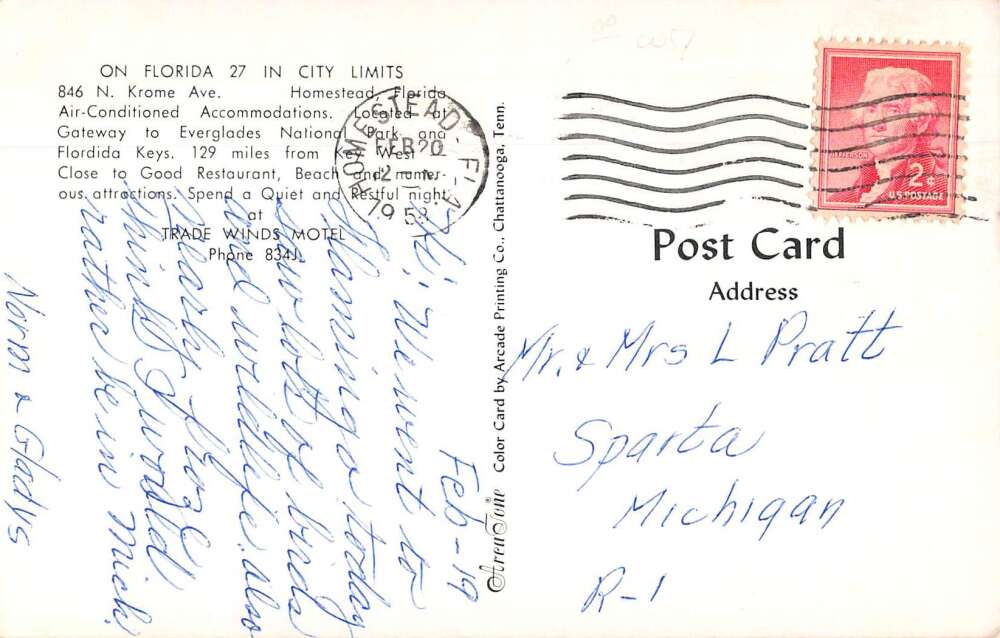 ON FLORIDA 27 IN CITY LIMITS
846 N. Krome Ave. Homestead, Florida
Air-Conditioned Accommodations. Located at
Gateway to Everglades National Park and
Flordida Keys. 129 miles from Key West
Close to Good Restaurant, Beach and numer-
ous attractions. Spend a Quiet and Restful night
at
TRADE WINDS MOTEL
Phone 834J
Feb-19
Hi, We went to
Flamingo today
saw lots of birds
and wildlife. also
nearly froze
think I would
rather be in Mich.
Norm & Gladys
AreaTone Color Card by Arcade Printing Co., Chattanooga, Tenn.
HOMESTEAD FLA
FEB 20
2
1958
JEFFERSON
2¢
U.S. POSTAGE
Post Card
Address
Mr. & Mrs L Pratt
Sparta
Michigan
R-1